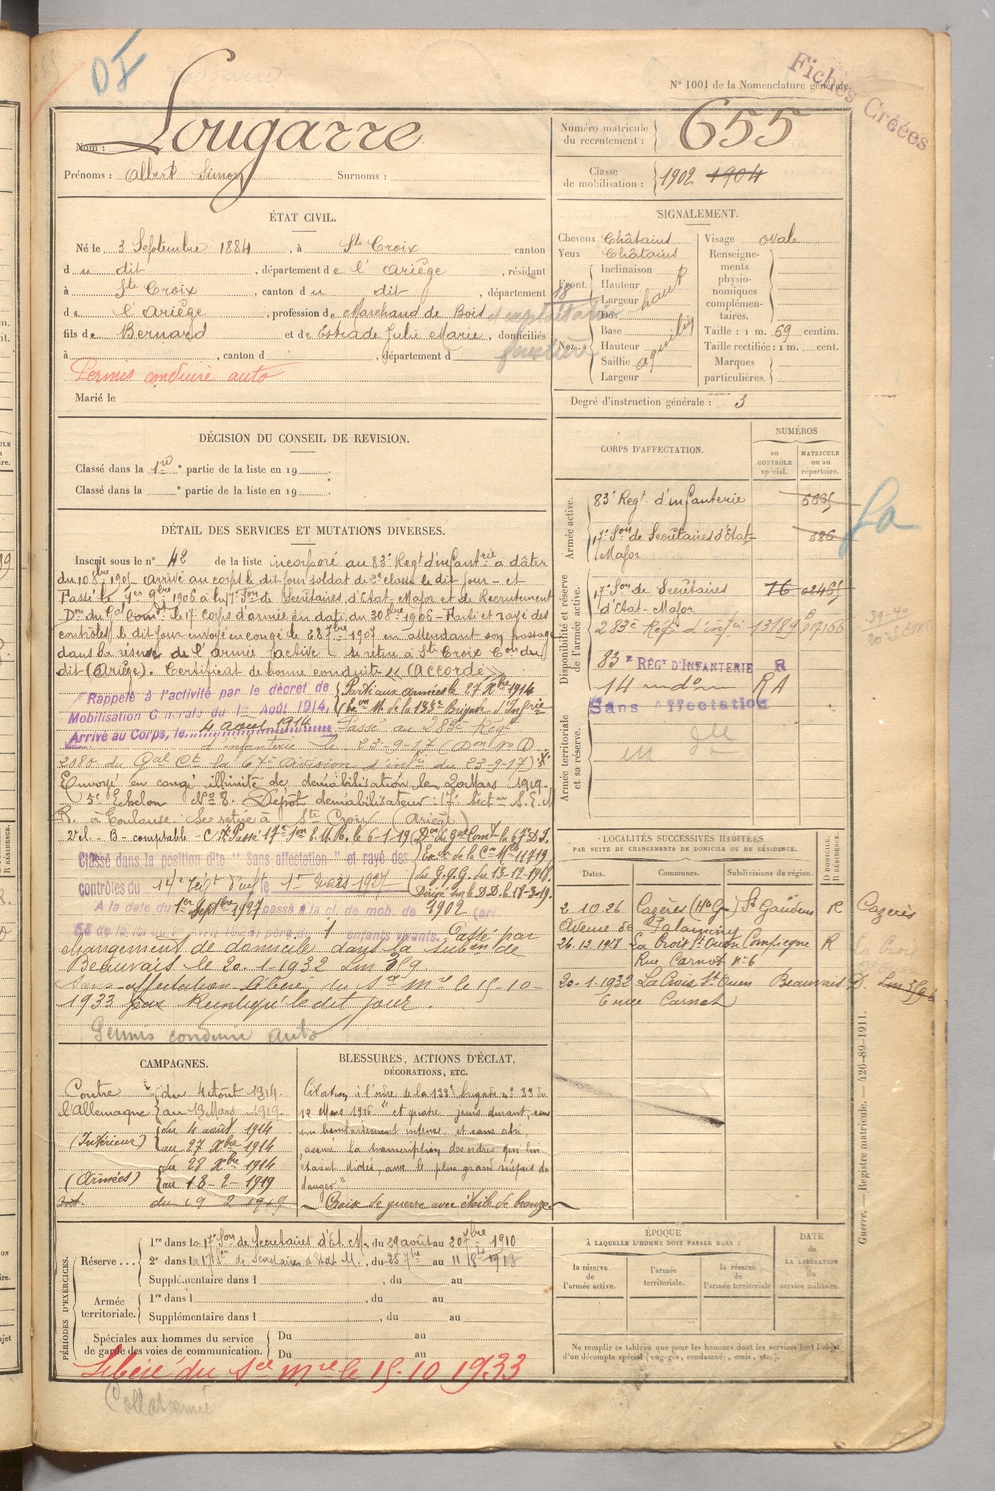 DF
N° 1001 de la Nomenclature générale.
Fiches Créées
Nom : Lougarre
Prénoms : Albert Simon Surnoms :
Numéro matricule du recrutement : 655
Classe de mobilisation : 1902 1904
ÉTAT CIVIL.
Né le 3 Septembre 1884, à Ste Croix canton
du dit, département de l'Ariège, résidant
à Ste Croix, canton du dit, département
de l'Ariège, profession de Marchand de Bois et exploitation
fils de Bernard et de Estrade Julie Marie, domiciliés
forestière
à , canton d , département d
Permis conduire auto
Marié le
SIGNALEMENT.
Cheveux Châtains Visage ovale
Yeux Châtains Renseignements physionomiques complémentaires.
Front Inclinaison
Hauteur
Largeur haut
Nez Dos
Base
Hauteur
Saillie
Largeur
Taille : 1 m. 69 centim.
Taille rectifiée : 1 m. cent.
Marques particulières.
Degré d'instruction générale : 3
DÉCISION DU CONSEIL DE REVISION.
Classé dans la 1re partie de la liste en 19
Classé dans la ° partie de la liste en 19
CORPS D'AFFECTATION.
NUMÉROS
AU CONTRÔLE spécial.
MATRICULE OU AU répertoire.
Armée active.
83e Regt. d'infanterie
17e Son de Secrétaires d'Etat-Major 386
Disponibilité et réserve de l'armée active.
17e Son de Secrétaires d'Etat-Major 76
283e Régt d'infie 13189 017166
83e RÉGt D'INFANTERIE R
14 mdo RA
Sans Affectation
Armée territoriale et sa réserve.
DÉTAIL DES SERVICES ET MUTATIONS DIVERSES.
Inscrit sous le n° 42 de la liste incorporé au 83e Regt d'Infantrie à dater
du 10 8bre 1905 arrivé au corps le dit jour soldat de 2e classe le dit jour et
Passé le 1er 9bre 1906 à la 17e Son de Secrétaires d'Etat-Major et de Recrutement
Don du Gal Comdt le 17e Corps d'armée en date du 30 8bre 1906 - Parti et rayé des
contrôles le dit jour envoyé en congé le 28 7bre 1907 en attendant son passage
dans la réserve de l'armée active se retire à Ste Croix Con du
dit (Ariège). Certificat de bonne conduite « Accordé »
Rappelé à l'activité par le décret de
Mobilisation Générale du 1er Août 1914.
Arrivé au Corps, le 4 août 1914
Parti aux armées le 27 Xbre 1914
Passé au 283e Régt
d'infanterie le 23-9-17 (Don No
2080 du Gal Ct la 67e Division d'infie du 23-9-17)
Envoyé en congé illimité de démobilisation le 20 Mars 1919.
5e Echelon No 8. Dépôt démobilisateur 17e Section S.E.M
R. à Toulouse. Se retire à Ste Croix (Ariège)
Classé dans la position dite "Sans affectation" et rayé des
contrôles du 14e Régt d'Inft le 1er Mars 1927
A la date du 1er Septbre 1927 passé à la cl. de mob. de 1902 (art.
58 de la loi du père de 1 enfants vivants. Passé par
changement de domicile dans la subon de
Beauvais le 20-1-1932 Lm 589
Sans affectation Libéré du sce Mre le 15-10-
1933 le dit jour
Permis conduire auto
LOCALITÉS SUCCESSIVES HABITÉES
PAR SUITE DE CHANGEMENTS DE DOMICILE OU DE RÉSIDENCE.
Dates. Communes. Subdivisions de région. D DOMICILE. R RÉSIDENCE.
2.10.26 Cazères (Hte Gne) St Gaudens R Cazères
Avenue de Palaminy
26.12.1928 La Croix St Ouen Compiègne R
Rue Carnot n° 6
20-1-1932 La Croix St Ouen Beauvais D.
rue Carnot
CAMPAGNES.
Contre l'Allemagne du 4 Août 1914
au 19 Mars 1919.
(Intérieur) du 4 août 1914
au 27 Xbre 1914
(Armées) du 28 Xbre 1914
au 18-2-1919
Int. du 19 2 1919
BLESSURES, ACTIONS D'ÉCLAT,
DÉCORATIONS, ETC.
Citation à l'ordre de la 133e brigade n° 33 du
12 Mars 1916 "et quatre jours durant, sous
un bombardement intense et sans abri,
assuré la transcription des ordres qui lui
étaient dictés, avec le plus grand mépris du
danger."
Croix de guerre avec étoile de bronze
PÉRIODES D'EXERCICES.
Réserve... 1re dans la 17e Son de Secrétaires d'Et. M., du 29 août au 20 7bre 1910
2e dans la 17e Son de Secrétaires d'Etat M., du 25 7bre au 11 8bre 1913
Supplémentaire dans l , du au
Armée territoriale. 1re dans l , du au
Supplémentaire dans l , du au
Spéciales aux hommes du service de garde des voies de communication. Du au
Du au
ÉPOQUE
À LAQUELLE L'HOMME DOIT PASSER DANS :
la réserve de l'armée active.
l'armée territoriale.
la réserve de l'armée territoriale
DATE de LA LIBÉRATION du service militaire.
Ne remplir ce tableau que pour les hommes dont les services font l'objet
d'un décompte spécial (engagés, condamnés, omis, etc.).
Libéré du Sce Mre le 15-10 1933
Collationné
Guerre. — Registre matricule. — 426-89-1911.